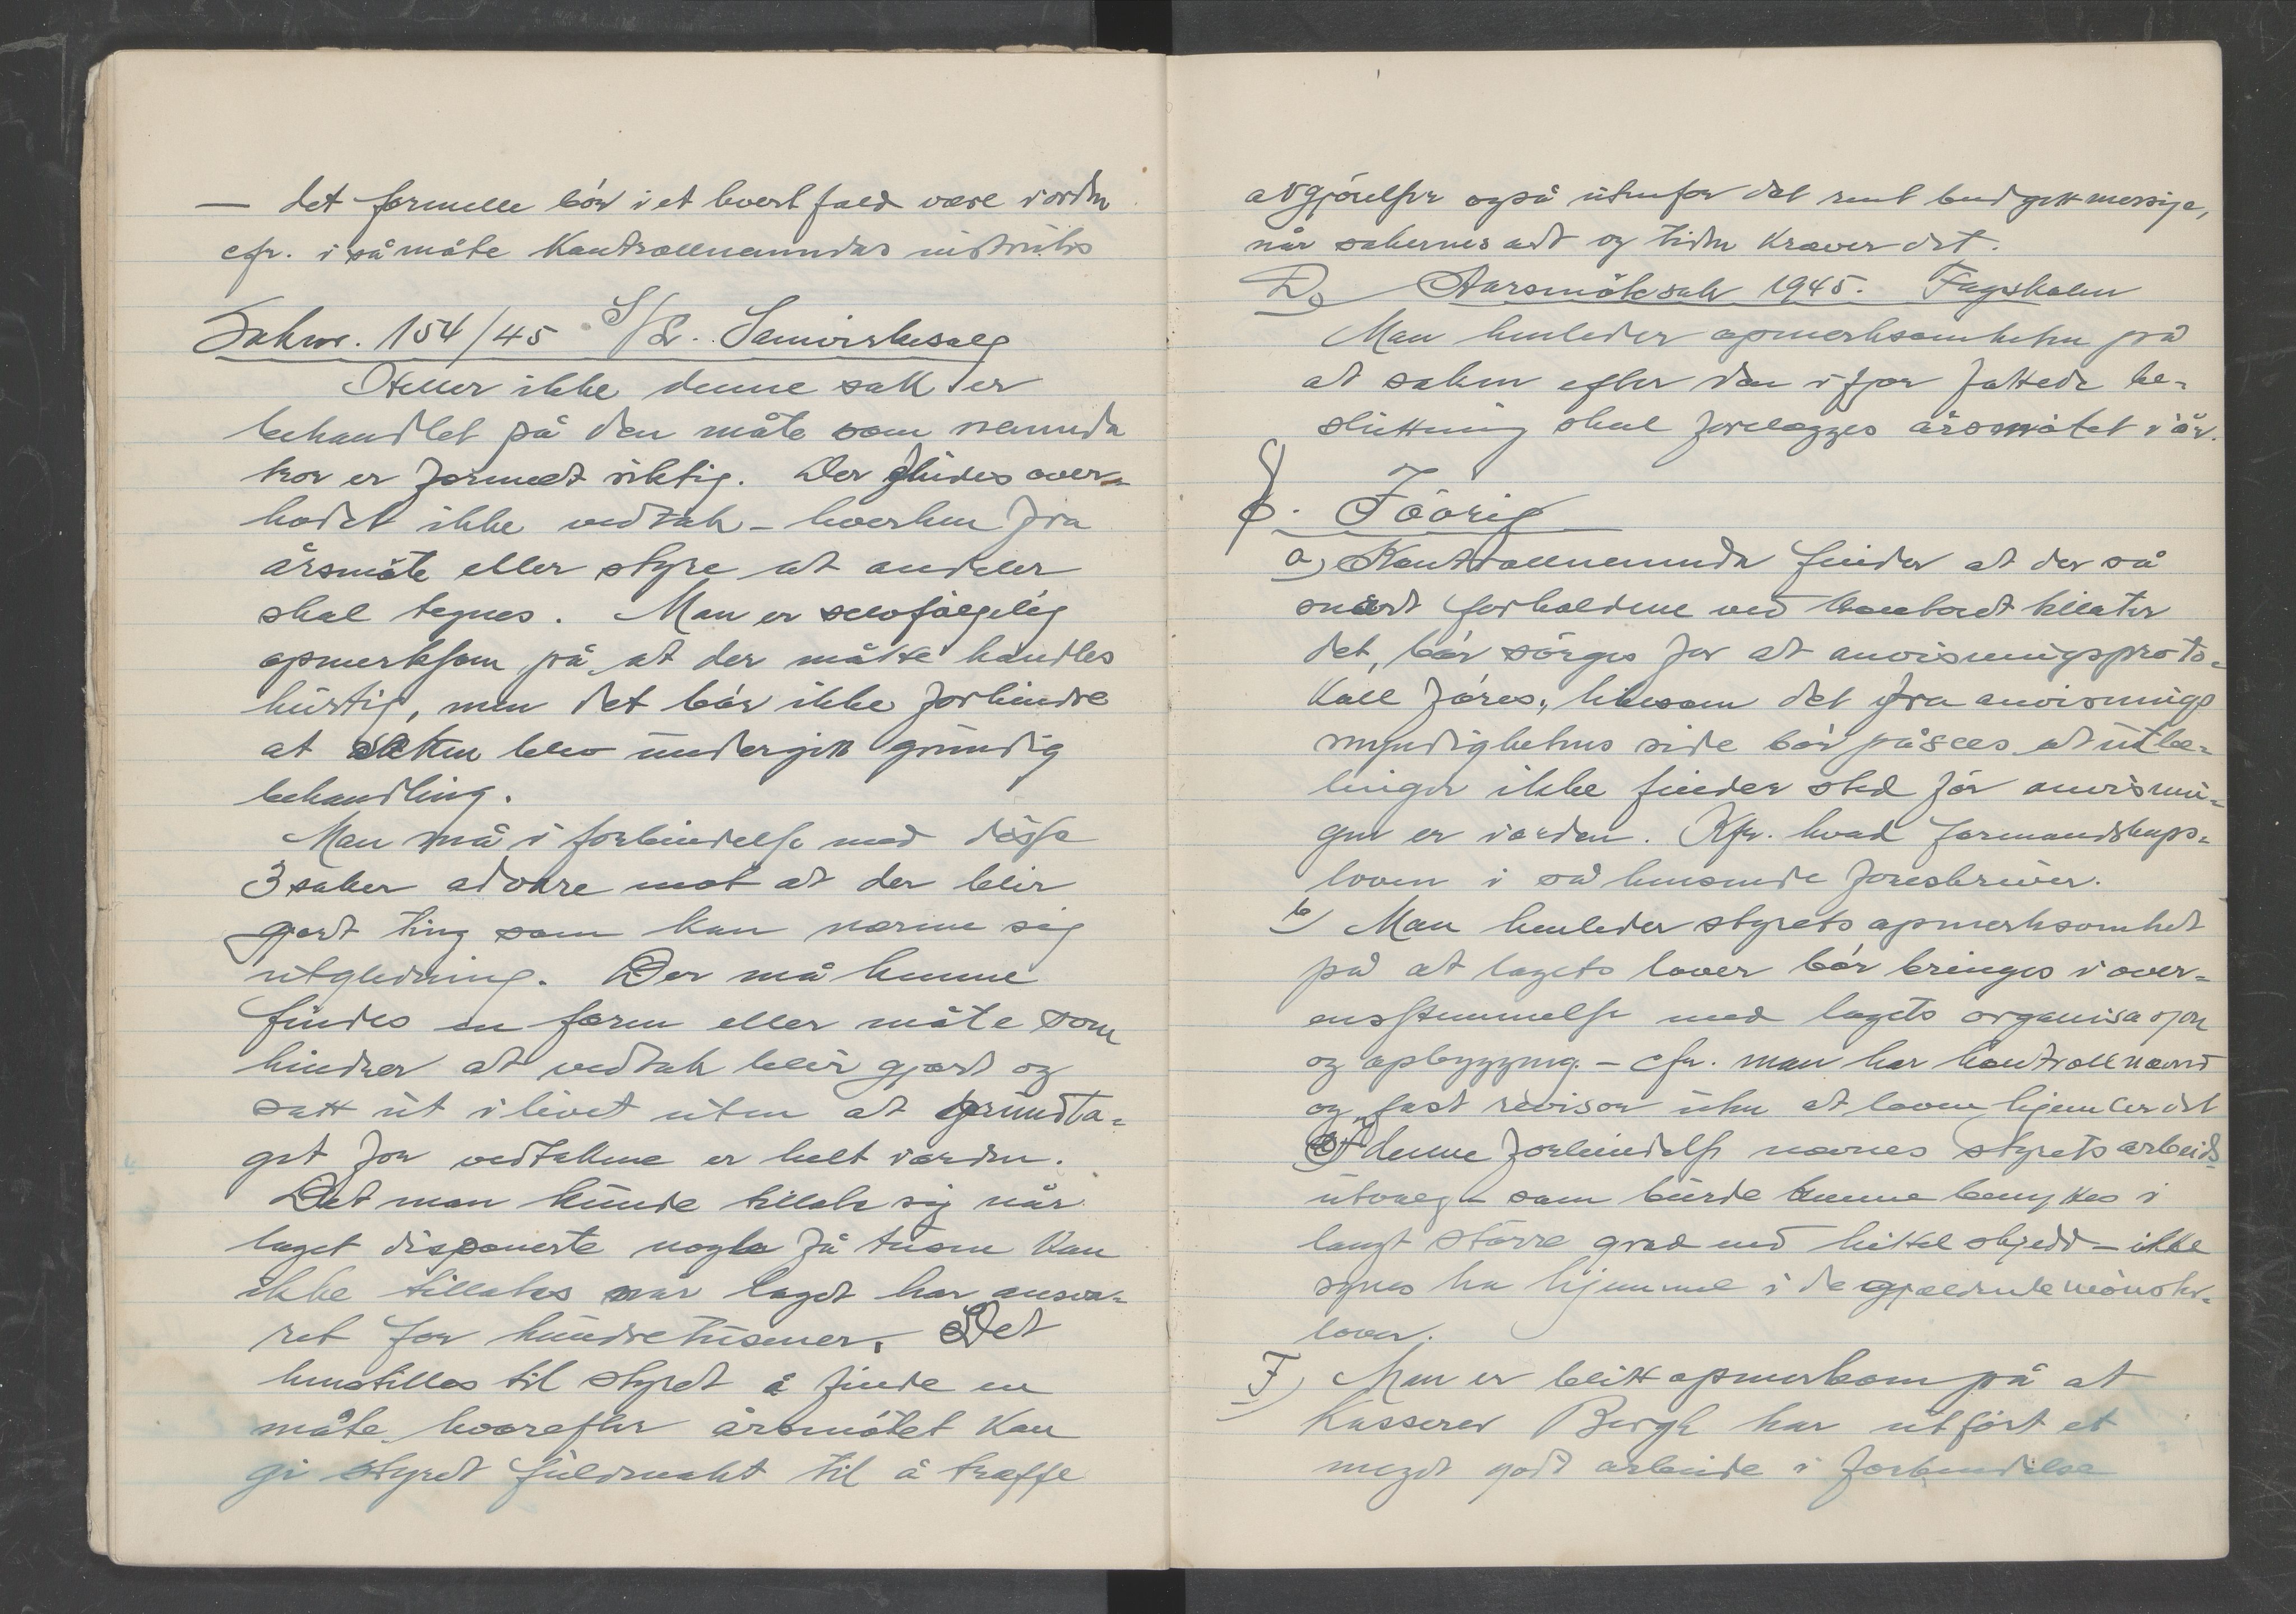 — det formelle bör i et hvert fald være i orden
cfr. i så måte Kontrollnemndas instruks
Saknr. 154/45 S/L. Samvirkesalg
Heller ikke denne sak er
behandlet på den måte som nemnda
tror er formelt riktig. Der findes over-
hodet ikke vedtak - hverken fra
årsmöte eller styre at andeler
skal tegnes. Man er selvfölgelig
opmerksom på at der måtte handles
hurtig, men det bör ikke forhindre
at saken blev undergitt grundig
behandling.
Man må i forbindelse med disse
3 saker advare mot at der blir
gjort ting som kan nærme sig
utglidning. Der må kunne
findes en form eller måte som
hindrer at vedtak blir gjort og
satt ut i livet uten at grundla-
get for vedtakene er helt i orden.
Det man kunde tillate sig når
laget disponerte nogle få tusen kan
ikke tillates når laget har ansva-
ret for hundretusener. Det
henstilles til styret å finde en
måte hvorefter årsmötet kan
gi styret fuldmakt til å træffe
avgjörelser også utenfor det rent budgettmessige,
når sakernes art og tiden krever det.
D. Aarsmötesak 1945. Fagskolen
Man henleder opmerksomheten på
at saken efter den i fjor fattede be-
slutning skal forelægges årsmötet i år.
E. Föörig
a) Kontrollnemnda finder at der så
snart forholdene ved kontoret tillater
det, bör sörges for at anvisningsproto-
koll föres, likesom det fra anvisnings
myndighetens side bör påsees at utbe-
linger ikke finder sted för anvisnin-
gen er i orden. Kfr. hvad formandskaps-
loven i så henseende foreskriver.
b) Man henleder styrets opmerksomhet
på at lagets lover bör bringes i over-
ensstemmelse med lagets organisasjon
og opbygging. - cfr. man har kontrollnemnd
og fast revisor uten at loven hjemler det
I denne forbindelse nevnes styrets arbeids-
utvalg - som burde kunne benyttes i
langt större grad end hittil skjedd - ikke
synes ha hjemmel i de gjældende mönster-
lover.
F) Man er blitt opmerksom på at
Kasserer Bergh har utfört et
meget godt arbeide i forbindelse